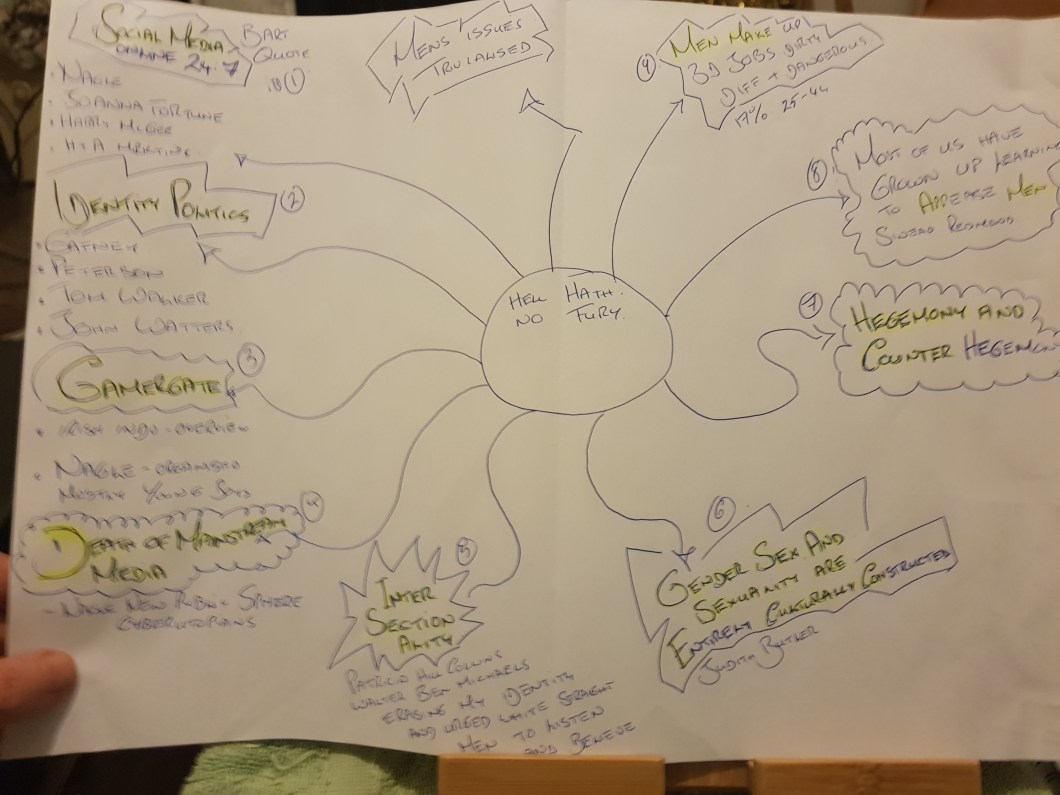 SOCIAL MEDIA
ONLINE 24.7
BART
QUOTE
①
· NAGLE
· JOANNA FORTUNE
· HARRY MCGEE
IDENTITY POLITICS
②
· GAFNEY
· PETERSON
· TOM WALKER
· JOHN WATTERS
GAMERGATE
③
· IRISH INDO-OVERVIEW
· NAGLE - ORGANISED
MOSTLY YOUNG
DEATH OF MAINSTREAM
MEDIA
④
- NAGLE NEW PUBLIC SPHERE
CYBERUTOPIANS
INTER
SECTION
ALITY
⑤
PATRICIA HILL COLLINS
WALTER BEN MICHAELS
ERASING MY IDENTITY
AND URGED WHITE STRAIGHT
MEN TO LISTEN
AND BELIEVE
HELL HATH.
NO FURY.
MENS ISSUES
TRIVIALISED
⑨
MEN MAKE UP
3D JOBS DIRTY
DIFF + DANGEROUS
17% 25-44
⑧
MOST OF US HAVE
GROWN UP LEARNING
TO APPEASE MEN
SINEAD REDMOND
⑦
HEGEMONY AND
COUNTER HEGEMON
⑥
GENDER SEX AND
SEXUALITY ARE
ENTIRELY CULTURALLY CONSTRUCTED
JUDITH BUTLER